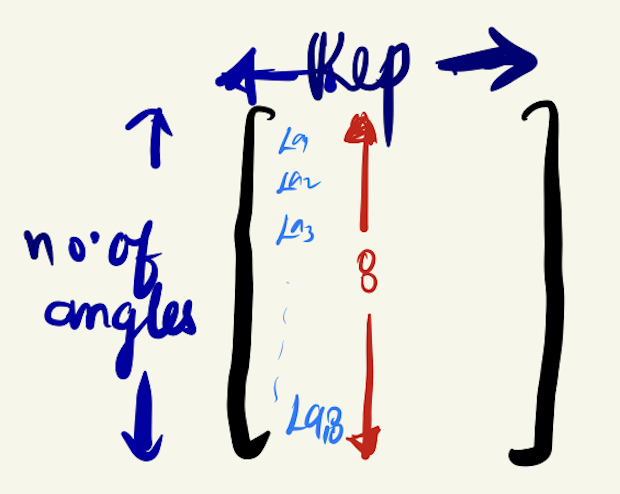 Rep
no. of
angles
La1
La2
La3
8
La,8